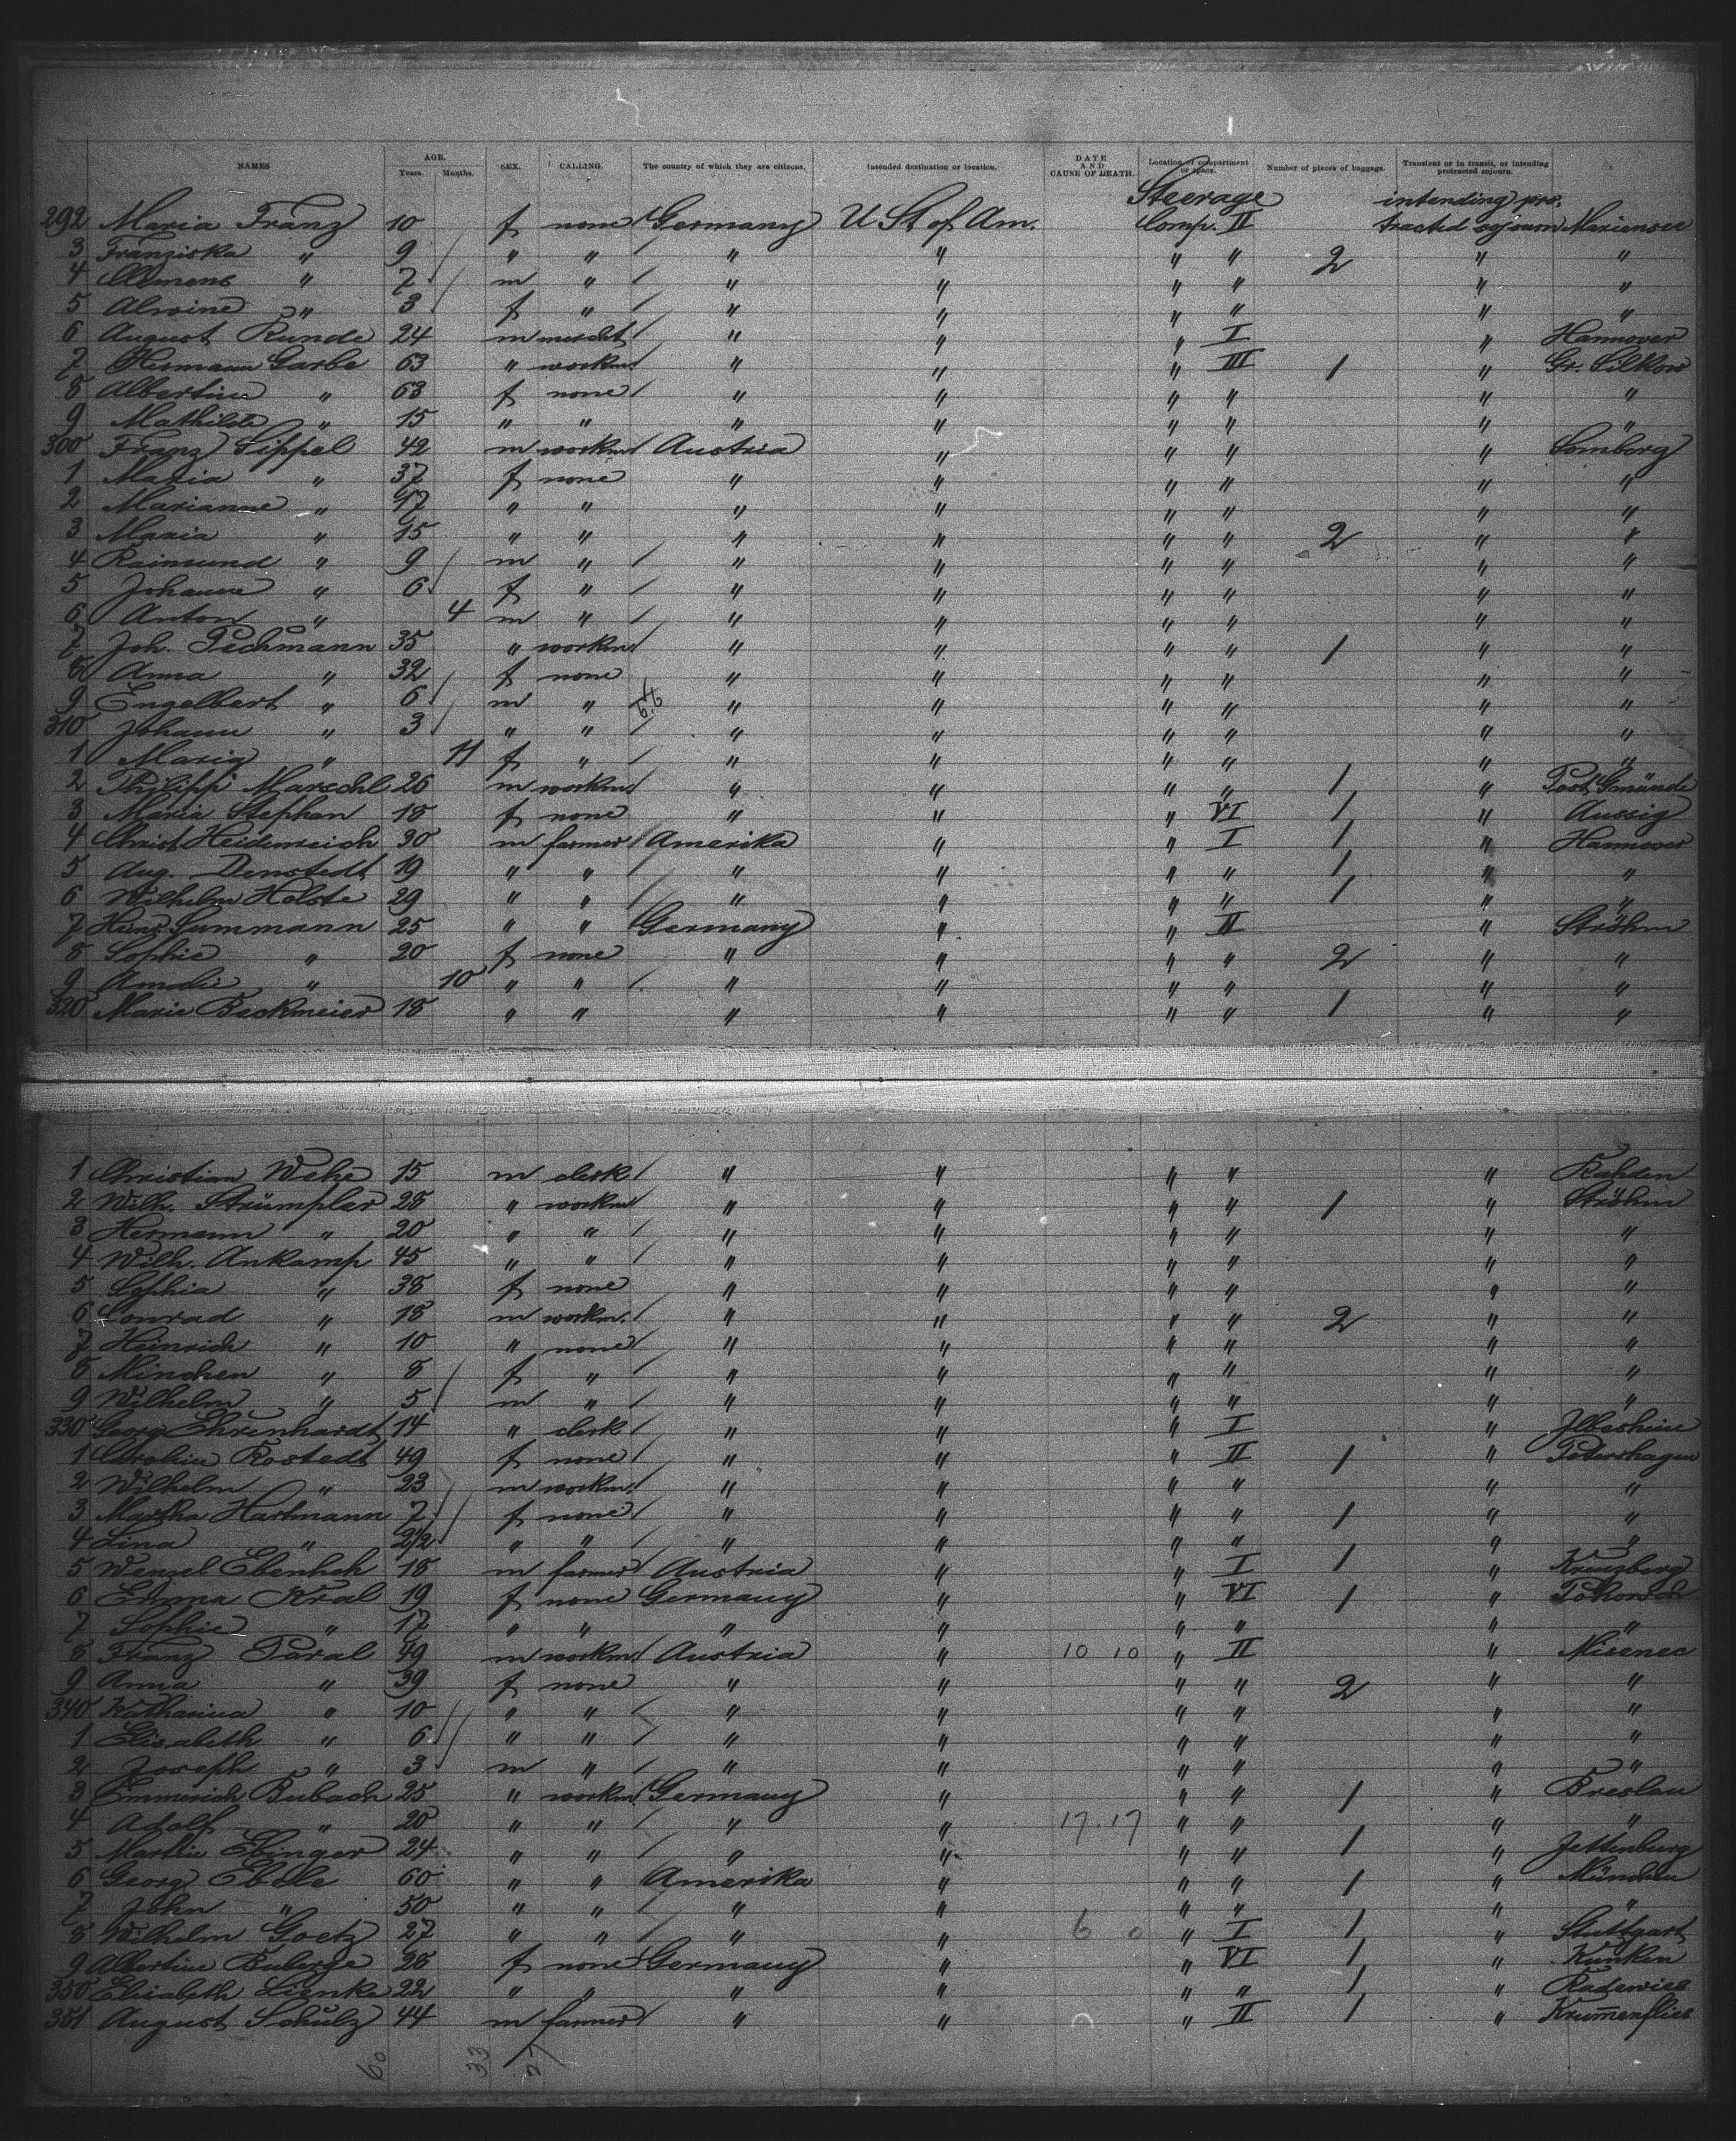 NAMES AGE. Years. Months. SEX. CALLING. The country of which they are citizens. Intended destination or location. DATE AND CAUSE OF DEATH. Location of compartment or space. Number of pieces of baggage. Transient or in transit, or intending protracted sojourn.
Steerage intending pro-
292 Maria Franz 10 f none Germany U St of Am. Comp. II tracted sojourn Mariensee
3 Franziska " 9 " " " " " " 2 " "
4 Clemens " 7 m " " " " " " "
5 Alwine " 3 f " " " " " " "
6 August Runde 24 m mercht " " " I " Hannover
7 Hermann Garbe 63 " workm " " " III 1 " Gr. Silkow
8 Albertine " 63 f none " " " " " "
9 Mathilde " 15 " " " " " " " "
300 Franz Sippel 42 m workm Austria " " " " Lomberg
1 Maria " 37 f none " " " " " "
2 Marianne " 17 " " " " " " " "
3 Maria " 15 " " " " " " 2 " "
4 Raimund " 9 m " " " " " " "
5 Johanne " 6 f " " " " " " "
6 Anton " 4 m " " " " " " "
7 Joh. Pechmann 35 " workm " " " " 1 " "
8 Anna " 32 f none " " " " " "
9 Engelbert " 6 m " " " " " " "
310 Johann " 3 " " " " " " " "
1 Maria " 11 f " " " " " " "
2 Philipp Marschl 26 m workm " " " " 1 " Post Gmünde
3 Maria Stephan 18 f none " " " VI 1 " Aussig
4 Christ Heidenreich 30 m farmer Amerika " " I 1 " Hannover
5 Aug. Denstedt 19 " " " " " " 1 " "
6 Wilhelm Holste 29 " " " " " " 1 " "
7 Heinr. Summann 25 " " Germany " " II " Ströhm
8 Sophie " 20 f none " " " " 2 " "
9 Amalie " 10 " " " " " " " "
320 Marie Beckmeier 18 " " " " " " 1 " "
1 Christian Wehe 15 m clerk " " " " " Rahden
2 Wilh. Strümpler 28 " workm " " " " 1 " Ströhm
3 Hermann " 20 " " " " " " " "
4 Wilh. Ankamp 45 " " " " " " " "
5 Sophia " 38 f none " " " " " "
6 Conrad " 18 m workm. " " " " 2 " "
7 Heinrich " 10 " none " " " " " "
8 Minchen " 8 f " " " " " " "
9 Wilhelm " 5 m " " " " " " "
330 Georg Ehrenhardt 14 " clerk " " " I " Ilbeshine
1 Caroline Rostedt 49 f none " " " II 1 " Petershagen
2 Wilhelm " 23 m workm. " " " " " "
3 Martha Hartmann 7 f none " " " " 1 " "
4 Lina " 2 1/2 " " " " " " " "
5 Wenzel 18 m farmer Austria " " I 1 " Kreuzberg
6 Emma Kral 19 f none Germany " " VI 1 "
7 Sophie " 17 " " " " " " " "
8 Franz Paral 49 m workm. Austria " 10 10 " II " Misenec
9 Anna " 39 f none " " " " 2 " "
340 Katharina " 10 " " " " " " " "
1 Elisabeth " 6 " " " " " " " "
2 Joseph " 3 m " " " " " " "
3 Emmerich Bubach 25 " workm Germany " " " 1 " Breslau
4 Adolf " 20 " " " " 17. 17 " " " "
5 Martin Ebinger 24 " " " " " " 1 " Jettenburg
6 Georg Eberle 60 " " Amerika " " " 1 " München
7 John " 50 " " " " " " " "
8 Wilhelm Goetz 27 " " " " 6 0 " I 1 " Stuttgart
9 Albertine Buberge 28 f none Germany " " VI 1 " Kunken
350 Elisabeth Lienke 22 " " " " " " 1 " Radewiese
351 August Schulz 44 m farmer " " " II 1 " Krumenflies
60 33 27